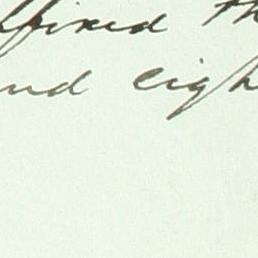 ffixed th
nd eigh